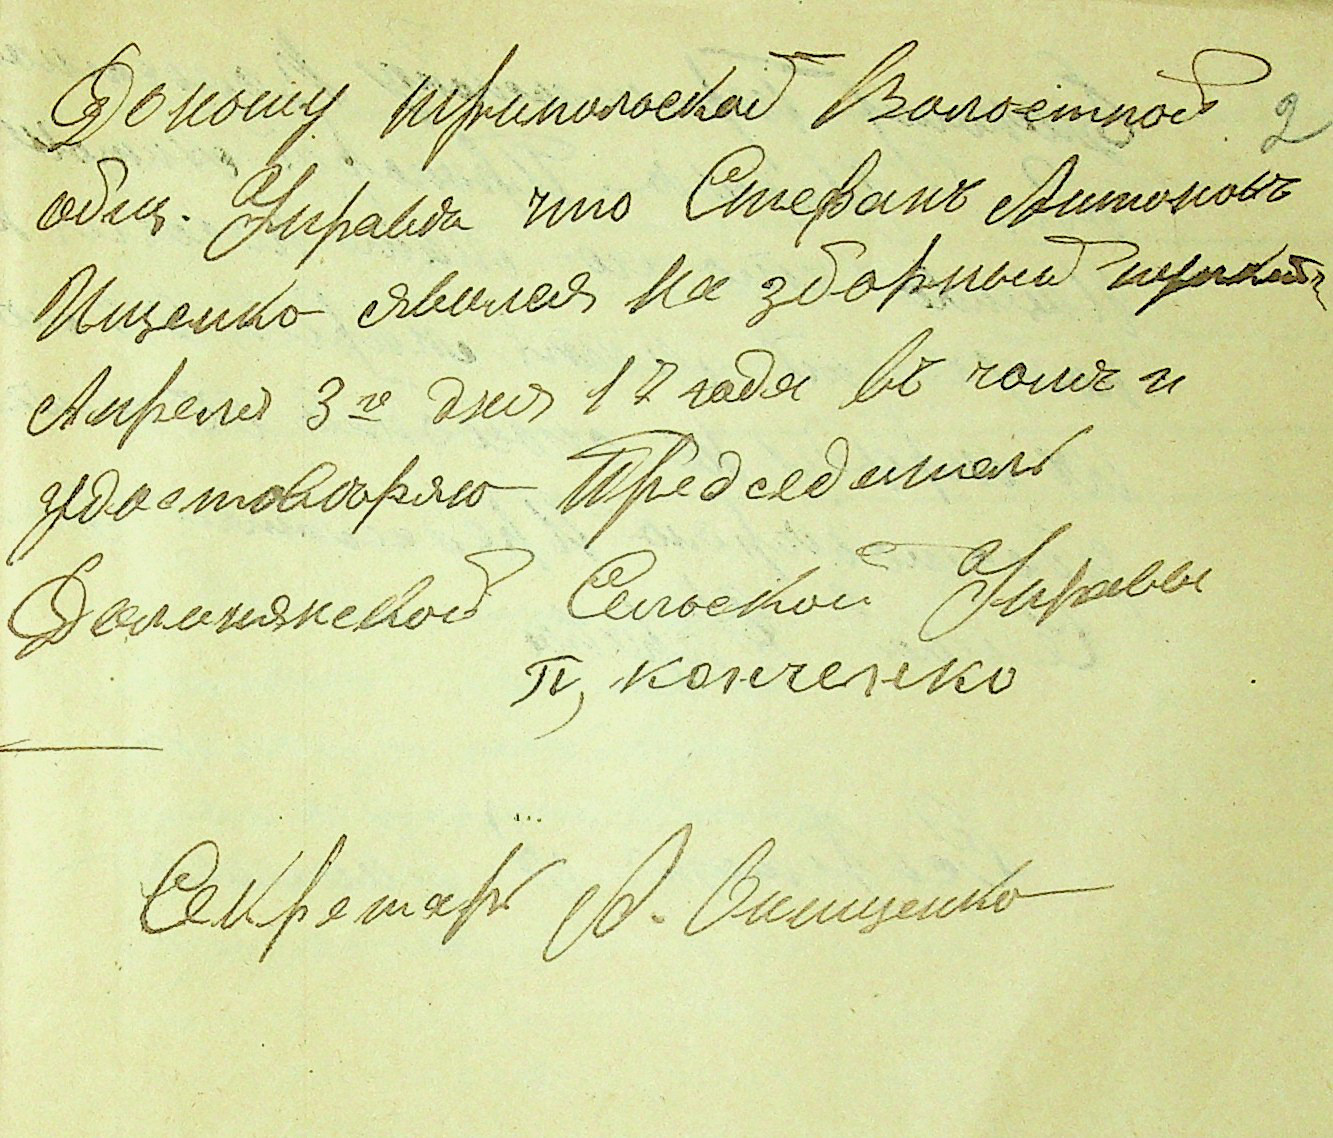 Доношу трипольской Волостной 2
общ. Управы что Стефанъ Антоновъ
Ищенко явился на зборный пунктъ
Апреля 3го дня 17 года въ чомъ и
удостоверяю Председатель
Долинянской Сельской Управы
П, конченко
Секретарь А. Онищенко